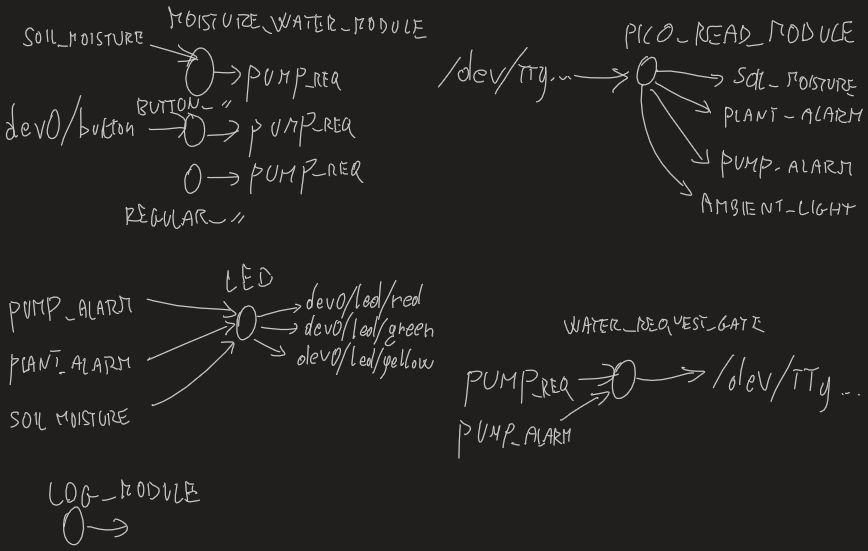 MOISTURE_WATER_MODULE
SOIL_MOISTURE
PUMP_REQ
BUTTON_〃
dev0/button
PUMP_REQ
PUMP_REQ
REGULAR_〃
PICO_READ_MODULE
/dev/TTy...
SOIL_MOISTURE
PLANT_ALARM
PUMP_ALARM
AMBIENT_LIGHT
LED
PUMP_ALARM
PLANT_ALARM
SOIL MOISTURE
dev0/led/red
dev0/led/green
dev0/led/yellow
WATER_REQUEST_GATE
PUMP_REQ
PUMP_ALARM
/dev/TTy...
LOG_MODULE